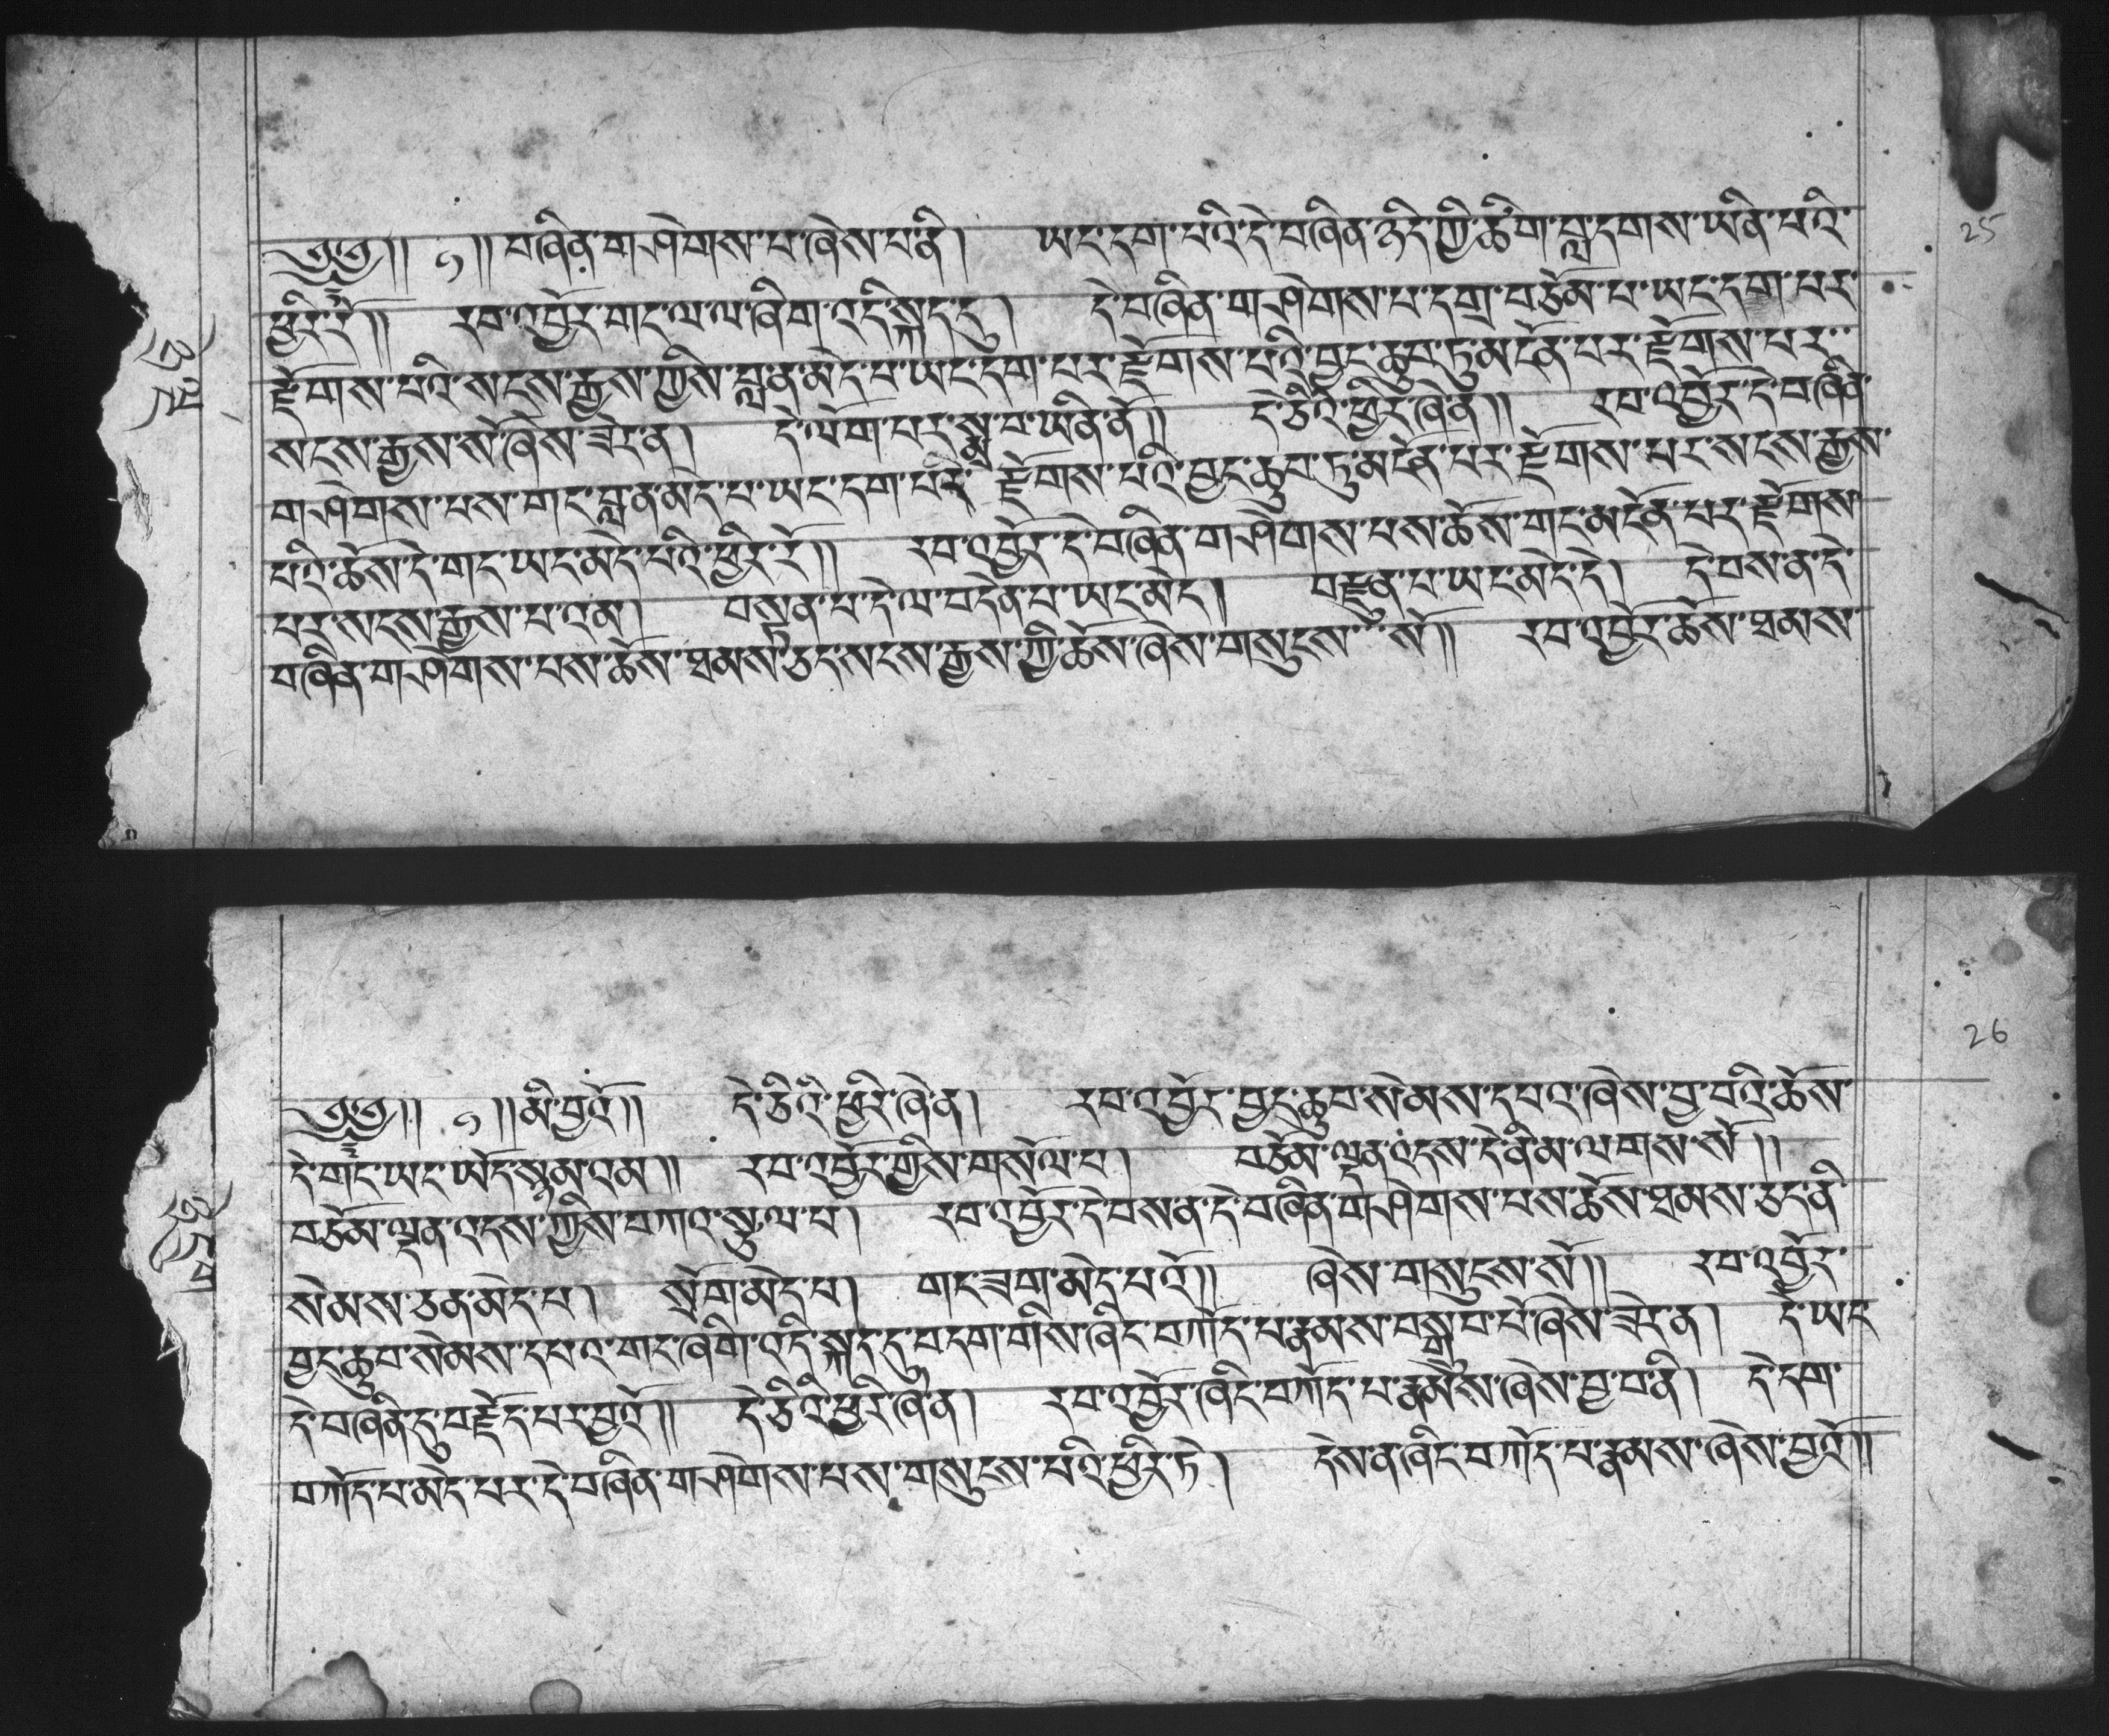 ༄༅།། ༡།།བཞིན་གཤེགས་པ་ཞེས་པ་ནི། ཡང་དག་པའི་དེ་བཞིན་ཉིད་ཀྱི་ཚིག་བླ་དགས་ཡིན་པའི་
25
ཕྱིར་རོ།། རབ་འབྱོར་གང་ལ་ལ་ཞིག་འདི་སྐད་དུ། དེ་བཞིན་གཤེགས་པ་དགྲ་བཅོམ་པ་ཡང་དག་པར་
རྫོགས་པའི་སངས་རྒྱས་ཀྱིས་བླ་ན་མེད་པ་ཡང་དག་པར་རྫོགས་པའི་བྱང་ཆུབ་ཏུ་མངོན་པར་རྫོགས་པར་
སངས་རྒྱས་སོ་ཞེས་ཟེར་ན། དེ་ལོག་པར་སྨྲ་བ་ཡིན་ནོ།། དེ་ཅིའི་ཕྱིར་ཞེ་ན།། རབ་འབྱོར་དེ་བཞིན་
གཤེགས་པས་གང་བླ་ན་མེད་པ་ཡང་དག་པར་རྫོགས་པའི་བྱང་ཆུབ་ཏུ་མངོན་པར་རྫོགས་པར་སངས་རྒྱས་
པའི་ཆོས་དེ་གང་ཡང་མེད་པའི་ཕྱིར་རོ།། རབ་འབྱོར་དེ་བཞིན་གཤེགས་པས་ཆོས་གང་མངོན་པར་རྫོགས་
པར་སངས་རྒྱས་པ་འམ། བསྟན་པ་དེ་ལ་བདེན་པ་ཡང་མེད། བརྫུན་པ་ཡང་མེད་དེ། དེ་བས་ན་དེ་
བཞིན་གཤེགས་པས་ཆོས་ཐམས་ཅད་སངས་རྒྱས་ཀྱི་ཆོས་ཞེས་གསུངས་སོ།། རབ་འབྱོར་ཆོས་ཐམས་
༄༅།། ༡།།མི་བྱའོ།། དེ་ཅིའི་ཕྱིར་ཞེ་ན། རབ་འབྱོར་བྱང་ཆུབ་སེམས་དཔའ་ཞེས་བྱ་བའི་ཆོས་
26
དེ་གང་ཡང་ཡོད་སྙམ་འམ།། རབ་འབྱོར་གྱིས་གསོལ་པ། བཅོམ་ལྡན་འདས་དེ་ནི་མ་ལགས་སོ།།
བཅོམ་ལྡན་འདས་ཀྱིས་བཀའ་སྩལ་པ། རབ་འབྱོར་དེ་བས་ན་དེ་བཞིན་གཤེགས་པས་ཆོས་ཐམས་ཅད་ནི་
སེམས་ཅན་མེད་པ། སྲོག་མེད་པ། གང་ཟག་མེད་པའོ།། ཞེས་གསུངས་སོ།། རབ་འབྱོར་
བྱང་ཆུབ་སེམས་དཔའ་གང་ཞིག་འདི་སྐད་དུ་བདག་གིས་ཞིང་བཀོད་པ་རྣམས་བསྒྲུབ་པོ་ཞེས་ཟེར་ན། དེ་ཡང་
དེ་བཞིན་དུ་བརྗོད་པར་བྱའོ།། དེ་ཅིའི་ཕྱིར་ཞེ་ན། རབ་འབྱོར་ཞིང་བཀོད་པ་རྣམས་ཞེས་བྱ་བ་ནི། དེ་དག་
བཀོད་པ་མེད་པར་དེ་བཞིན་གཤེགས་པས་གསུངས་པའི་ཕྱིར་ཏེ། དེས་ན་ཞིང་བཀོད་པ་རྣམས་ཞེས་བྱའོ།།